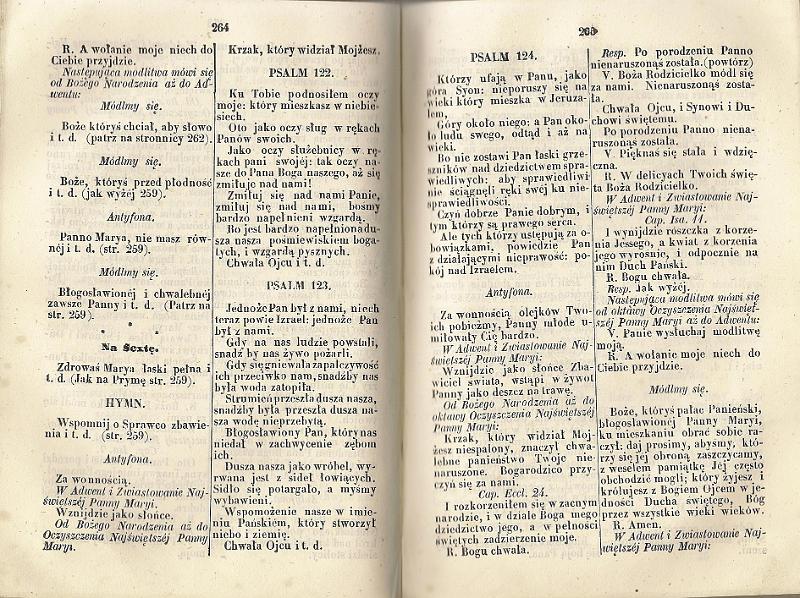 264
R. A wołanie moje niech do
Ciebie przyjdzie.
Następująca modlitwa mówi się
od Bożego Narodzenia aż do Ad-
wentu:
Módlmy się.
Boże któryś chciał, aby słowo
i t. d. (patrz na stronnicy 262).
Módlmy się.
Boże, któryś przed płodność
i t. d. (jak wyżej 259).
Antyfona.
Panno Marya, nie masz rów-
néj i t. d. (str. 259).
Módlmy się.
Błogosławionéj i chwalebnéj
zawsze Panny i t. d. (Patrz na
str. 259).
Na Sextę.
Zdrowaś Marya łaski pełna i
t. d. (Jak na Prymę str. 259).
HYMN.
Wspomnij o Sprawco zbawie-
nia i t. d. (str. 259).
Antyfona.
Za wonnością.
W Adwent i Zwiastowanie Naj-
świętszéj Panny Maryi.
Wznijdzie jako słońce.
Od Bożego Narodzenia aż do
Oczyszczenia Najświętszéj Panny
Maryi.
Krzak, który widział Mojżesz.
PSALM 122.
Ku Tobie podnosiłem oczy
moje: który mieszkasz w niebie-
siech.
Oto jako oczy sług w rękach
Panów swoich.
Jako oczy służebnicy w rę-
kach pani swojéj: tak oczy na-
sze do Pana Boga naszego, aż się
zmiłuje nad nami!
Zmiłuj się nad nami Panie,
zmiłuj się nad nami, bośmy
bardzo napełnieni wzgardą.
Bo jest bardzo napełniona du-
sza nasza pośmiewiskiem boga-
tych, i wzgardą pysznych.
Chwała Ojcu i t. d.
PSALM 123.
Jednoże Pan był z nami, niech
teraz powie Izrael: jednoże Pan
był z nami.
Gdy na nas ludzie powstali,
snadź by nas żywo pożarli.
Gdy się gniewała zapalczywość
ich przeciwko nam, snadźby nas
była woda zatopiła.
Strumień przeszła dusza nasza,
snadźby była przeszła dusza na-
sza wodę nieprzebytą.
Błogosławiony Pan, który nas
niedał w zachwycenie zębom
ich.
Dusza nasza jako wróbel, wy-
rwana jest z sideł łowiących.
Sidło się potargało, a myśmy
wybawieni.
Wspomożenie nasze w imie-
niu Pańskiém, który stworzył
niebo i ziemię.
Chwała Ojcu i t. d.
265
PSALM 124.
Którzy ufają w Panu, jako
góra Syon: nieporuszy się na
wieki który mieszka w Jeruza-
lem,
Góry około niego: a Pan oko-
ło ludu swego, odtąd i aż na
wieki.
Bo nie zostawi Pan łaski grze-
szników nad dziedzictwem spra-
wiedliwych: aby sprawiedliwi
nie ściągnęli ręki swéj ku nie-
sprawiedliwości.
Czyń dobrze Panie dobrym, i
tym którzy są prawego serca.
Ale tych którzy ustępują za o-
bowiązkami, powiedzie Pan
z działającymi nieprawość: po-
kój nad Izraelem.
Antyfona.
Za wonnością olejków Two-
ich pobieżmy, Panny młode u-
miłowały Cię bardzo.
W Adwent i Zwiastowanie Naj-
świętszéj Panny Maryi:
Wznijdzie jako słońce Zba-
wiciel świata, wstąpi w żywot
Panny jako deszcz na trawę.
Od Bożego Narodzenia aż do
oktawy Oczyszczenia Najświętszéj
Panny Maryi:
Krzak, który widział Moj-
żesz niespalony, znaczył chwa-
lebne panieństwo Twoje nie-
naruszone. Bogarodzico przy-
czyń się za nami.
Cap. Eccl. 24.
I rozkorzeniłem się w zacnym
narodzie, i w dziale Boga mego
dziedzictwo jego, a w pełności
świętych zadzierzenie moje.
R. Bogu chwała.
Resp. Po porodzeniu Panno
nienaruszonąś została. (powtórz)
V. Boża Rodzicielko módl się
za nami. Nienaruszonąś zosta-
ła.
Chwała Ojcu, i Synowi i Du-
chowi świętemu.
Po porodzeniu Panno niena-
ruszonąś została.
V. Pięknaś się stała i wdzię-
czna.
R. W delicyach Twoich świę-
ta Boża Rodzicielko.
W Adwent i Zwiastowanie Naj-
świętszéj Panny Maryi:
Cap. Isa. 11.
I wynijdzie rószczka z korze-
nia Jessego, a kwiat z korzenia
jego wyrośnie, i odpocznie na
nim Duch Pański.
R. Bogu chwała.
Resp. Jak wyżéj.
Następująca modlitwa mówi się
od oktawy Oczyszczenia Najświęt-
széj Panny Maryi aż do Adwentu:
V. Panie wysłuchaj modlitwę
moją.
R. A wołanie moje niech do
Ciebie przyjdzie.
Módlmy się.
Boże, któryś pałac Panieński,
błogosławionéj Panny Maryi,
ku mieszkaniu obrać sobie ra-
czył: daj prosimy, abyśmy, któ-
rzy się jéj obroną zaszczycamy,
z weselem pamiątkę Jéj często
obchodzić mogli; który żyjesz i
królujesz z Bogiem Ojcem w je-
dności Ducha świętego, Bóg
przez wszystkie wieki wieków.
R. Amen.
W Adwent i Zwiastowanie Naj-
świętszéj Panny Maryi: